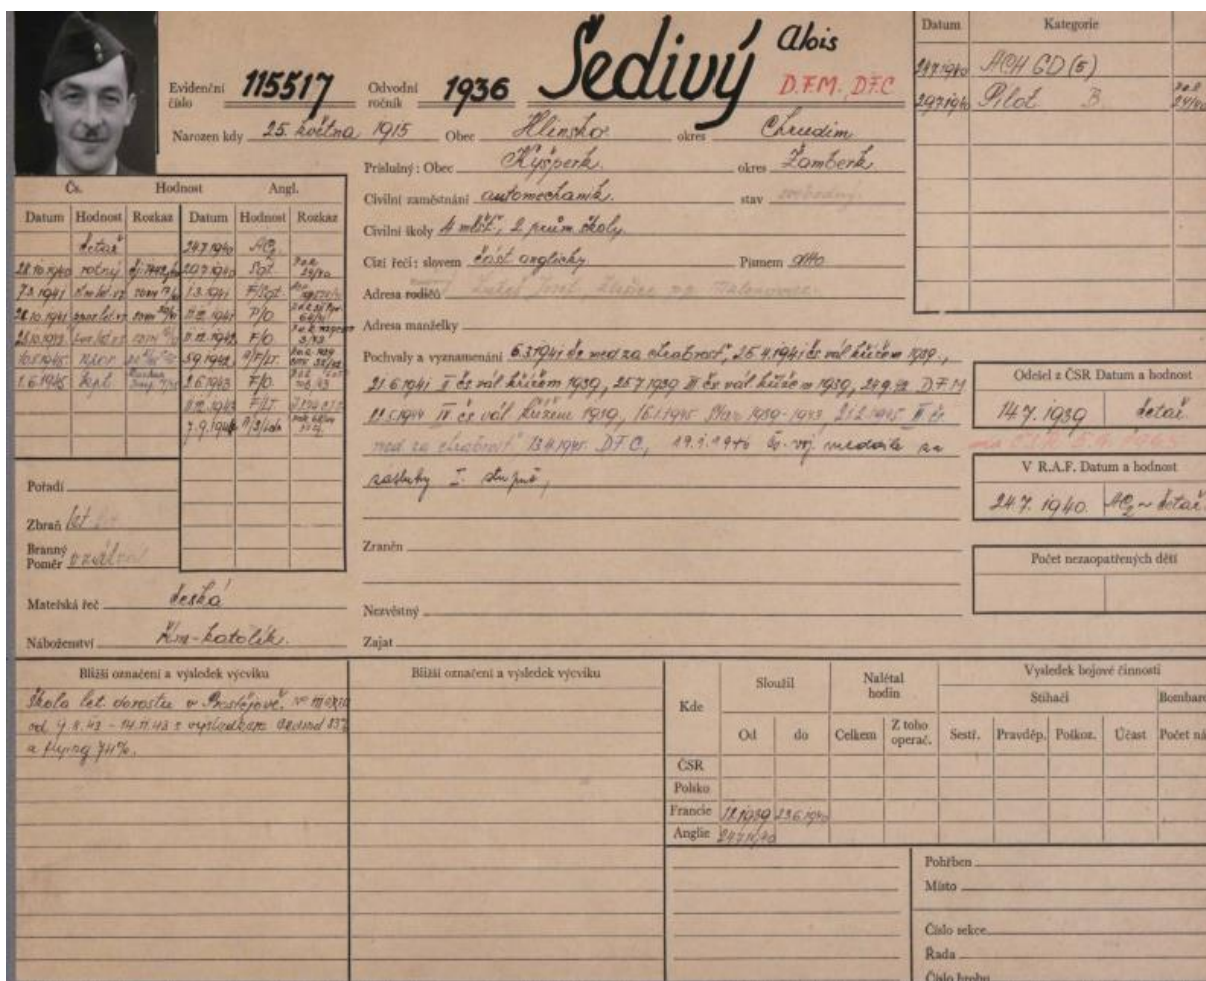 Evidenční číslo 115517 Odvodní ročník 1936 Šedivý Alois
D.F.M. D.F.C
Narozen kdy 25. května 1915 Obec Hlinsko okres Chrudim
Příslušný: Obec Kyšperk okres Žamberk.
Civilní zaměstnání automechanik. stav svobodný.
Civilní školy 4 měšť, 2 prům školy.
Cizí řeči: slovem část anglicky Písmem ditto
Adresa rodičů
Adresa manželky
Pochvaly a vyznamenání 6.3.1941 čs med za chrabrost, 26.4.1941 čs vál křížem 1939,
21.6.1941 II čs vál křížem 1939, 25.7.1939 III čs vál křížem 1939, 24.9.42 D.F.M
IV čs vál křížem 1939, 1945 Star 1939-1943, 21.2.1945 II čs
med za chrabrost 13.4.1945. D.F.C., 19.1.1946 čs. voj. medaile za
zásluhy I. stupně,
Zraněn
Nezvěstný
Zajat
Datum Kategorie
24.7.1940 ACH GD (5)
29.7.1940 Pilot B.
Odešel z ČSR Datum a hodnost
14.7.1939 četař
V R.A.F. Datum a hodnost
24.7.1940. AC2 ~ četař
Počet nezaopatřených dětí
Čs. Hodnost Angl.
Datum Hodnost Rozkaz Datum Hodnost Rozkaz
četař 24.7.1940 AC2
28.10.1940 rotný 29.7.1940 Sgt.
7.3.1941 1.3.1941 F/Sgt.
28.10.1941 1941 P/O
1942 F/O
5.9.1942 A/F/Lt
1.6.1945 kpt. 2.6.1943 F/O
1943 F/LT
7.9.1944 A/S/Ldr
Pořadí
Zbraň let.
Branný Poměr
Mateřská řeč česká
Náboženství Řím-katolík.
Bližší označení a výsledek výcviku
Škola let. dorostu v Prostějově.
14.11.43 s výsledkem Ground 83%
a flying 74%.
Bližší označení a výsledek výcviku
Kde Sloužil Nalétal hodin Výsledek bojové činnosti
Stihači Bombard
Od do Celkem Z toho operač. Sestř. Pravděp. Poškoz. Účast Počet ná
ČSR
Polsko
Francie 1939 23.6.1940
Anglie 24.7.1940
Pohřben
Místo
Číslo sekce
Řada
Číslo hrobu